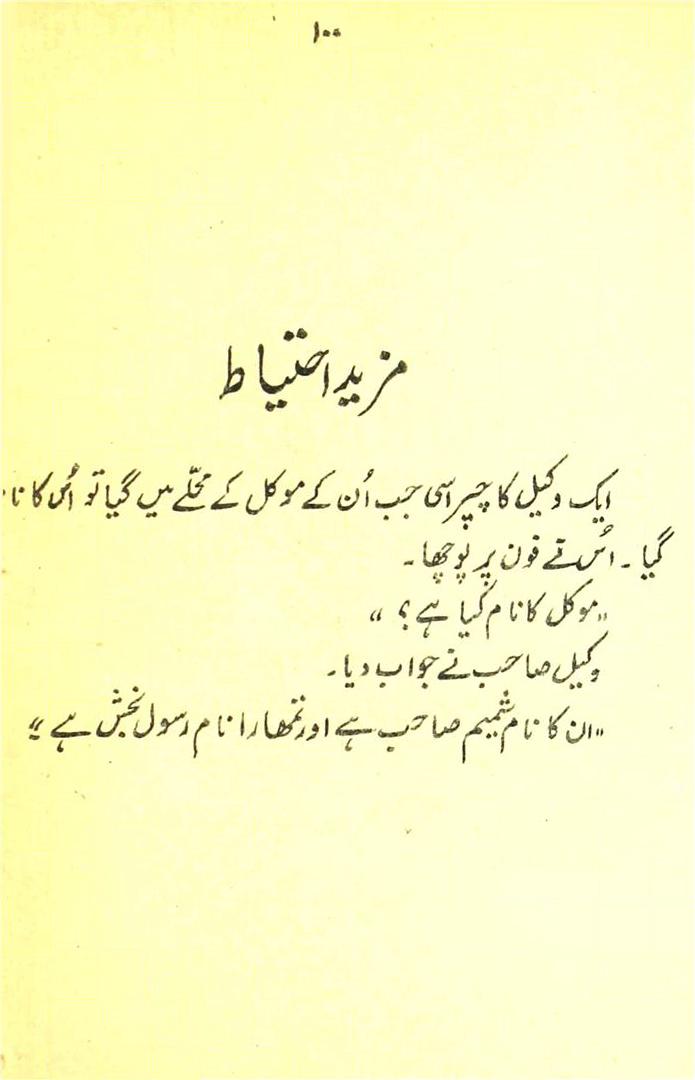 ۱۰۰
مزید احتیاط
ایک وکیل کا چپراسی جب اُن کے موکل کے محلّے میں گیا تو اُس کا نا
گیا۔ اُس نے فون پر پوچھا۔
"موکل کا نام کیا ہے؟"
وکیل صاحب نے جواب دیا۔
"ان کا نام شمیم صاحب ہے اور تمھارا نام رسول بخش ہے"